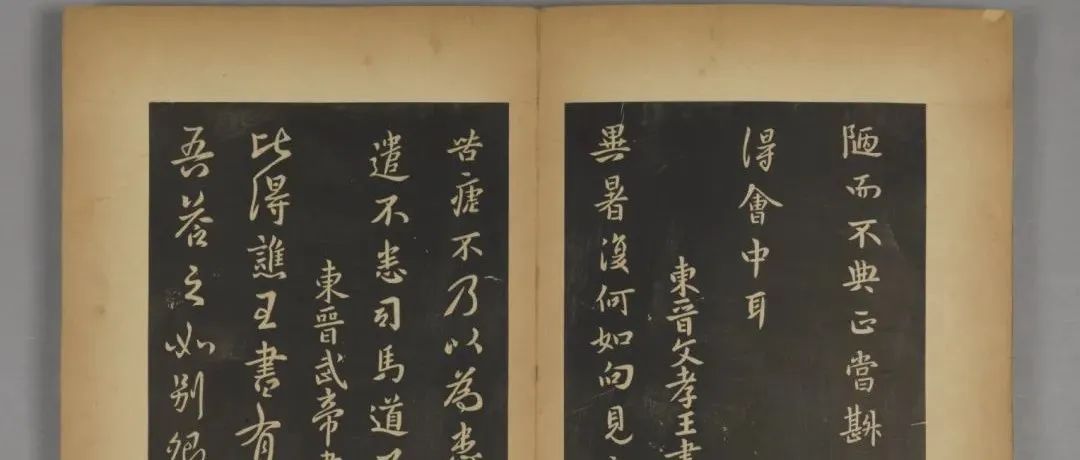 陋而不典正當斟
得會中耳
東晉文孝王書
異暑復何如向見
苦瘧不乃以為患
遣不悉司馬道
東晉武帝書
比得譙王書有
吾答之如別卿